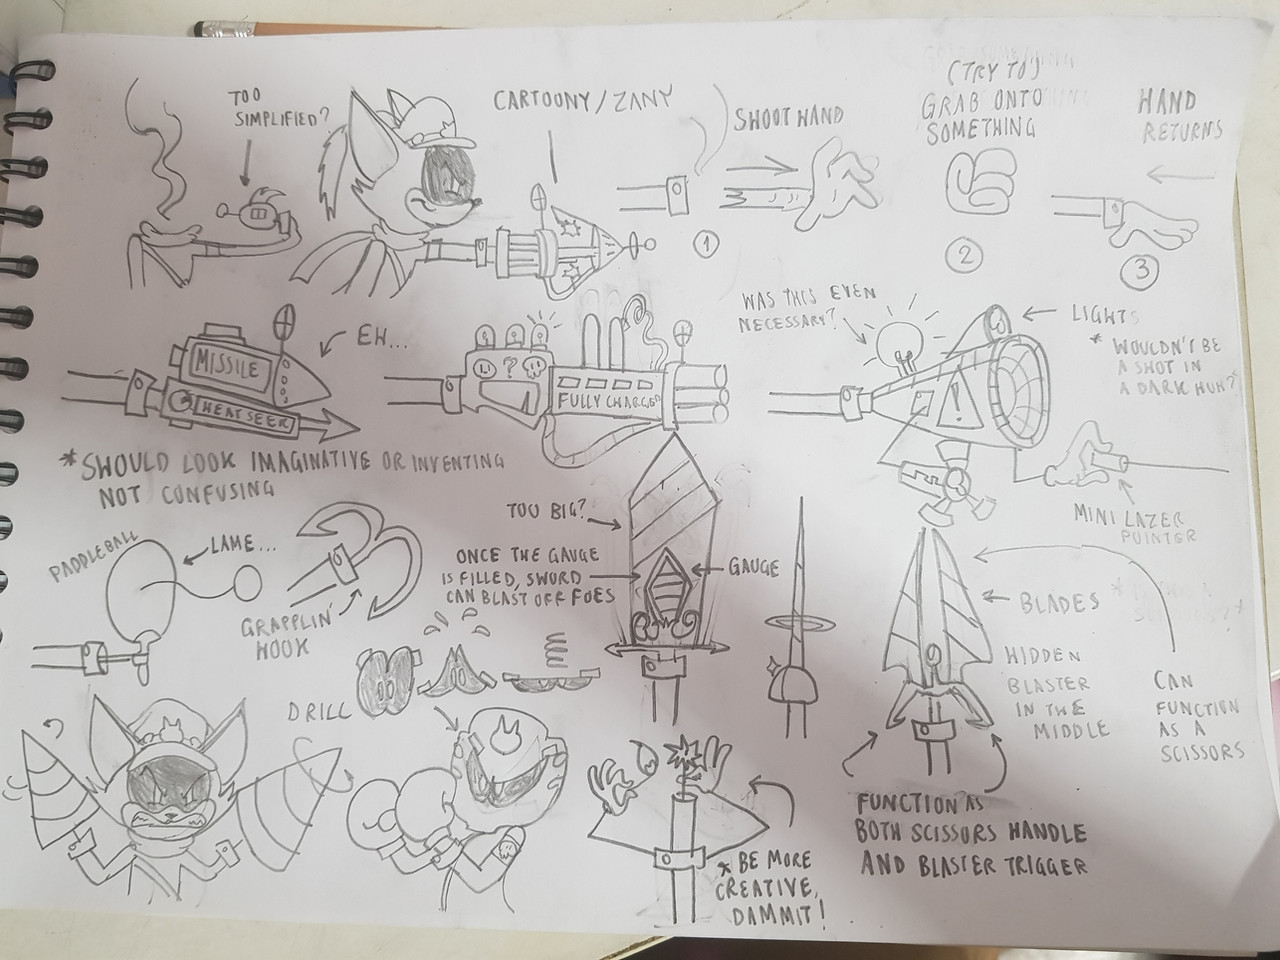 TOO
SIMPLIFIED?
CARTOONY/ZANY
SHOOT HAND
(TRY TO)
GRAB ONTO
SOMETHING
HAND
RETURNS
1
2
3
EH...
MISSILE
HEATSEEK
?
FULLY CHARGED
WAS THIS EVEN
NECESSARY?
LIGHTS
* WOULDN'T BE
A SHOT IN
A DARK HUH?*
!
MINI LAZER
POINTER
*SHOULD LOOK IMAGINATIVE OR INVENTING
NOT CONFUSING
PADDLEBALL
LAME...
GRAPPLIN'
HOOK
TOO BIG?
ONCE THE GAUGE
IS FILLED, SWORD
CAN BLAST OFF FOES
GAUGE
BLADES
HIDDEN
BLASTER
IN THE
MIDDLE
CAN
FUNCTION
AS A
SCISSORS
DRILL
FUNCTION AS
BOTH SCISSORS HANDLE
AND BLASTER TRIGGER
* BE MORE
CREATIVE,
DAMMIT!